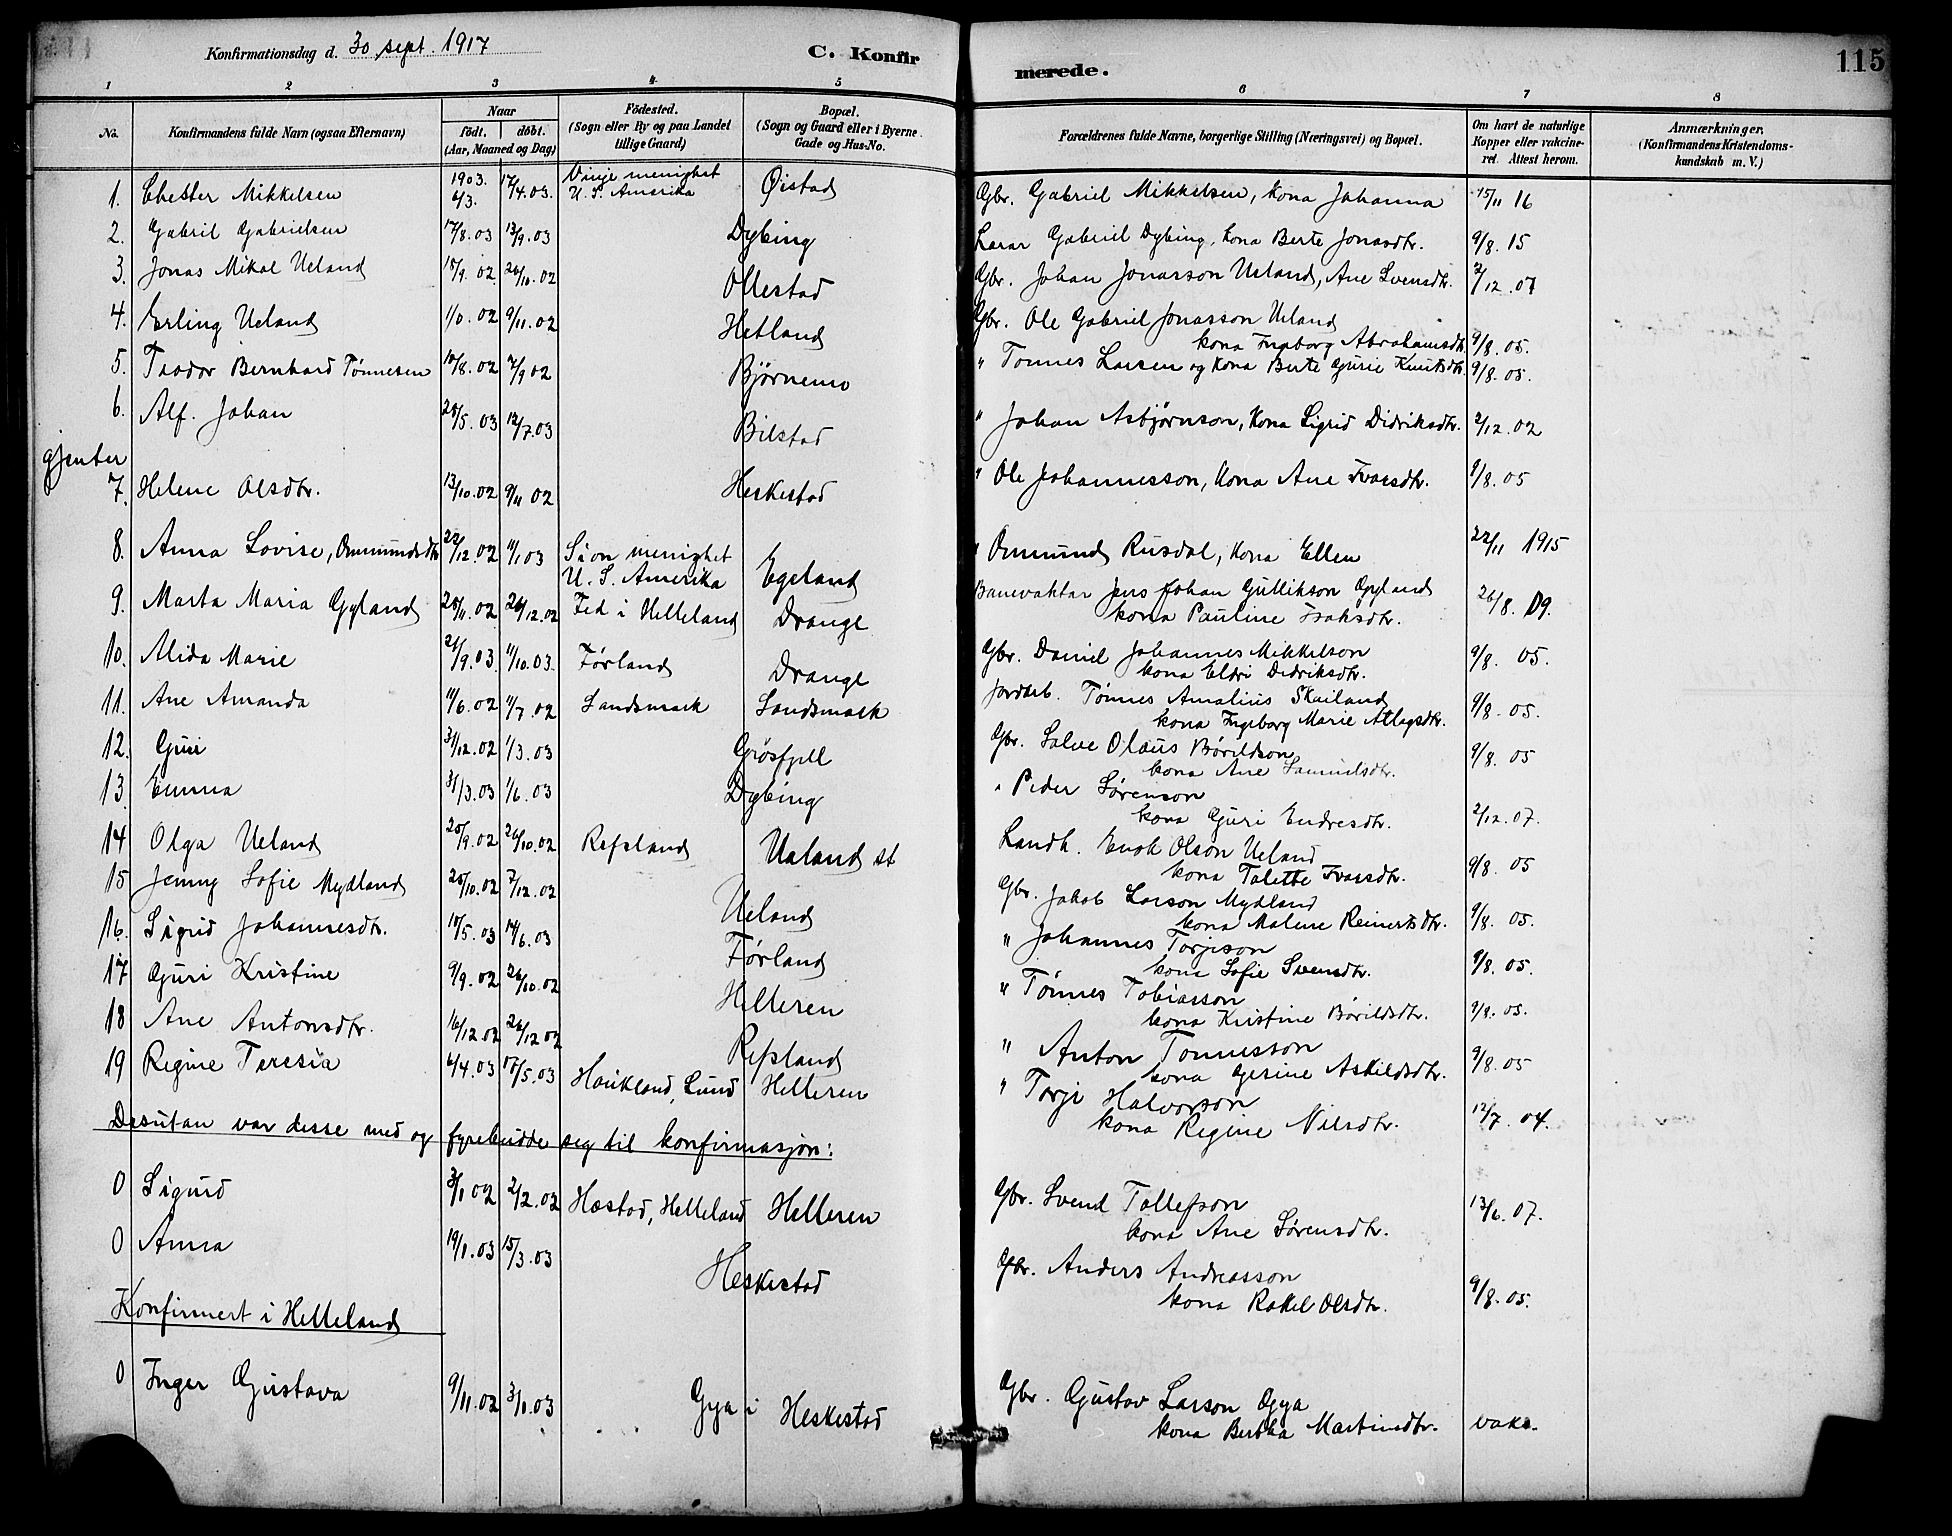 Konfirmationsdag d. 30 sept. 1917
C. Konfirmerede.
115
1 2 3 4 5 6 7 8
No.
Konfirmandens fulde Navn (ogsaa Efternavn)
Naar
födt. döbt.
(Aar, Maaned og Dag)
Födested.
(Sogn eller By og paa Landet
tillige Gaard)
Bopæl.
(Sogn og Gaard eller i Byerne
Gade og Hus-No.
Forældrenes fulde Navne, borgerlige Stilling (Næringsvei) og Bopæl.
Om havt de naturlige
Kopper eller vakcine-
ret. Attest herom.
Anmærkninger.
(Konfirmandens Kristendoms-
kundskab m. V.)
1. Chester Mikkelsen 1903. 6/3. 17/4.03. Vinje menighet U. S. Amerika Øistad Gbr. Gabriel Mikkelsen, kona Johanna 15/11 16
2. Gabriel Gabrielsen 17/8.03 13/9.03 Dybing Lærar Gabriel Dybing, kona Berte Jonasdtr. 9/8. 15
3. Jonas Mikal Ueland 18/9. 02 26/10. 02 Ollestad Gbr. Johan Jonasson Ueland, Ane Svensdtr. 2/12. 07
4. Erling Ueland 1/10. 02 9/11. 02 Hetland Gbr. Ole Gabriel Jonasson Ueland
kona Ingeborg Abrahamsdtr. 9/8. 05.
5. Teodor Bernhard Tønnesen 10/8. 02 7/9 02 Bjørnemo " Tonnes Larsen og kona Berte Gurie Knutsdtr. 9/8. 05.
6. Alf. Johan 28/5. 03 12/7.03 Bilstad " Johan Asbjørnson, kona Sigrid Didriksdtr. 2/12. 02
gjenter
7. Helene Olsdtr. 13/10.02 9/11 02 Heskestad " Ole Johannesson, kona Ane Ivarsdtr. 9/8. 05
8. Anna Lovise, Ommundsdtr 22/12. 02 11/1 03 Sion menighet U. S. Amerika Egeland " Ommund Rusdal, kona Ellen 22/11 1915
9. Marta Maria Gyland 28/11. 02 26/12. 02 Fed i Helleland Drange Banevaktar Jens Johan Gullikson Gyland
kona Pauline Isaksdtr. 26/8. 09.
10. Alida Marie 21/9.03. 11/10.03. Førland Drange Gbr. Daniel Johannes Mikkelson
kona Eldri Didriksdtr. 9/8. 05.
11. Ane Amanda 11/6.02 11/7.02 Landsmark Landsmark Jordarb. Tønnes Amalius Skailand
kona Ingeborg Marie Atlagsdtr. 9/8. 05.
12. Guri 31/12.02 1/3.03 Grøsfjell Gbr. Salve Olaus Bórildson
kona Ane Samuelsdtr. 9/8. 05
13. Emma 31/3.03 1/6.03 Dybing " Peder Sørenson
kona Guri Endresdtr. 2/12. 07.
14 Olga Ueland 28/9.02 26/10.02 Refsland Ualand st Landh. Enok Olson Ueland
kona Talette Ivarsdtr. 9/8 05
15 Jenny Sofie Mydland 28/10.02 7/12.02 Ueland Gbr. Jakob Larson Mydland
kona Malene Reinertsdtr. 9/8. 05.
16. Sigrid Johannesdtr. 18/5. 03 14/6.03 Førland " Johannes Torjeson
kona Sofie Svensdtr. 9/8. 05.
17 Guri Kristine 9/9. 02 26/10.02 Helleren " Tønnes Tobiasson
kona Kristine Bórildsdtr. 9/8. 05.
18 Ane Antonsdtr. 16/12.02 26/12 02 Refsland " Anton Tonnesson
kona Gesine Askildsdtr. 9/8. 05
19 Regine Teresia 6/4.03 17/5.03 Haukland, Lund Helleren " Torje Halvorson
kona Regine Nilsdtr. 12/7. 04.
Desutan var desse med og fyrebudde seg til konfirmasjon:
0 Sigurd 3/1 02 2/2.02 Hæstad, Helleland Helleren Gbr. Svend Tollefson
kona Ane Sørensdtr. 13/6. 07.
0 Anna 19/1.03 15/3.03 Heskestad Gbr. Anders Andreasson
kona Rakel Olsdtr. 9/8. 05.
Konfirmert i Helleland
0 Inger Gustava 9/11.02 3/1.03 Gya i Heskestad Gbr. Gustav Larson Gya
kona Bertha Martinsdtr. vaks.